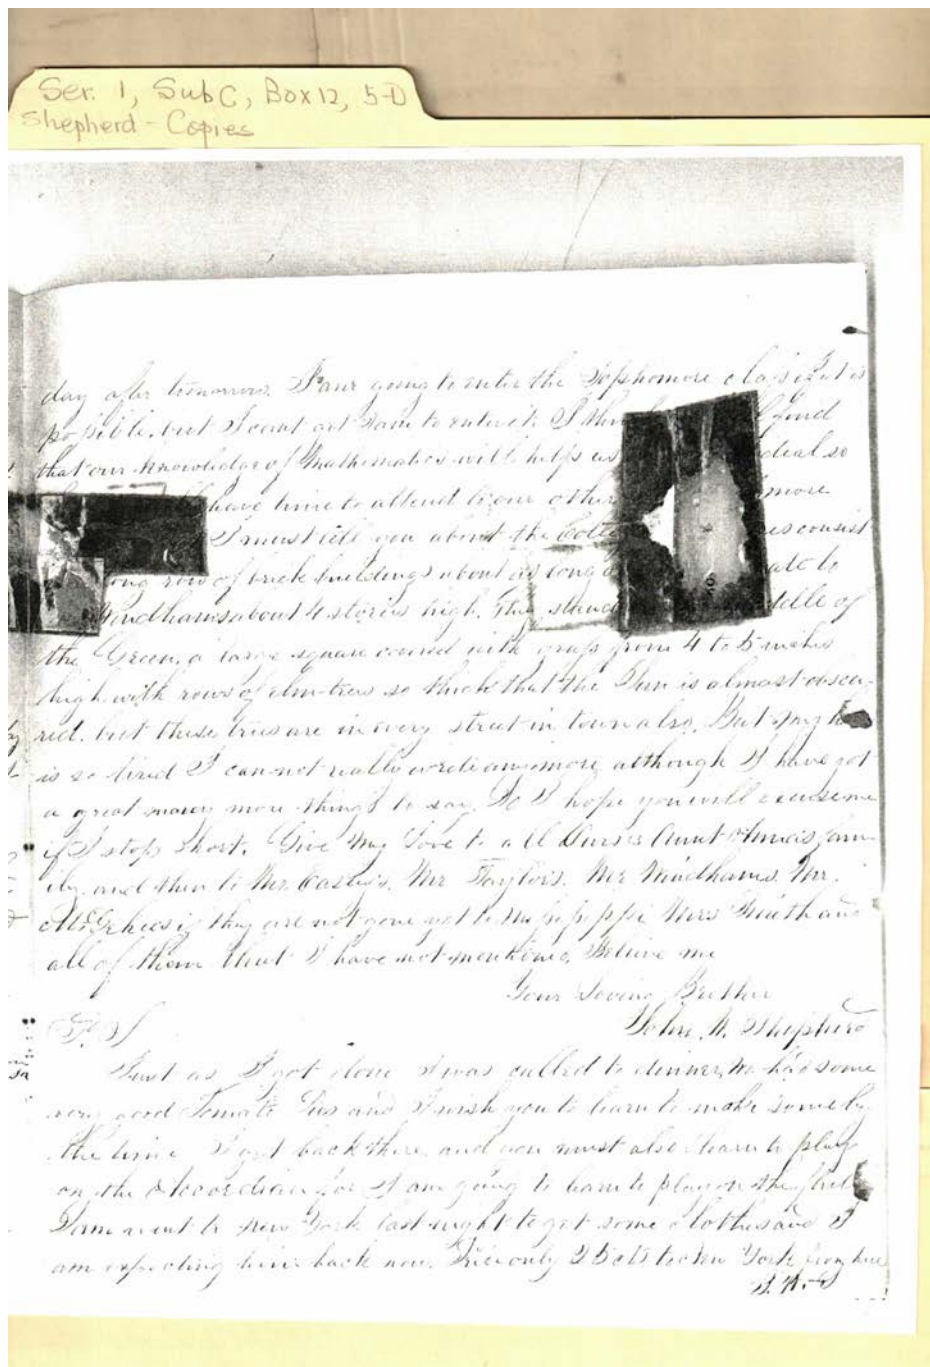 Ser. 1, Sub C, Box 12, 5-D
Shepherd - Copies
day after tomorrow. I am going to enter the Sophomore class if it is
possible, but I can't get Sam to enter it. I think find
that our knowledge of Mathematics will help us deal so
have time to attend to our other more
I must tell you about the Colle consist
long row of brick buildings about as long ate to
Windhams about 4 stories high. They stand ddle of
the Green, a large square covered with grass from 4 to 5 inches
high with rows of elm-trees so thick that the Sun is almost obscu-
red. but these trees are in every street in town also. But my
is so tired I can not really write any more, although I have got
a great many more things to say. So I hope you will excuse me
if I stop short. Give my Love to all Aunt fam
ily. and then to Mr. Mr Taylors. Mr Windhams. Mr.
McGehees if they are not gone yet to Mississippi Mrs Smith and
all of them that I have not mentioned, Believe me
Your Loving Brother
John W. Shepherd
P. S
Just as I got done I was called to dinner, we had some
very good Tomato Pies and I wish you to learn to make some by
the time I get back there, and you must also learn to play
on the Accordian for I am going to learn to play on the flute
Sam went to New York last night to get some clothes and I
am expecting him back now. Price only 25 cts to New York from here
J. W. S